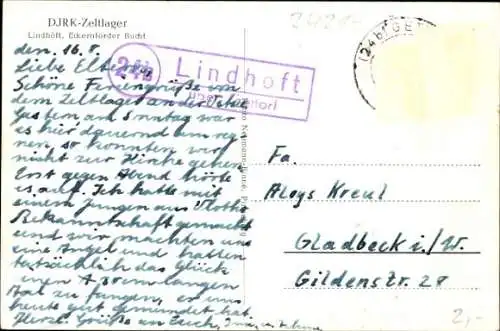 DJRK-Zeltlager
Lindhöft, Eckernförder Bucht
den 16.8.
Liebe Eltern,
Schöne Feriengrüße von
dem Zeltlager an der
Gestern, am Sonntag war
es hier dauernd am reg-
nen, so konnten wir
nicht zur Kirche gehen.
Erst gegen Abend hörte
es auf. Ich hatte mit
einem Jungen aus Vlotho
Bekanntschaft gemacht
und wir machten uns
eine Angel und hatten
tatsächlich das Glück
einen langen
Aal zu fangen, er
heute gut gemundet hat.
Herzl. Grüße an Euch,
24b
Lindhöft
(24b)
Fa.
Aloys Kreul
Gladbeck i./W.
Gildenstr. 28
2,-